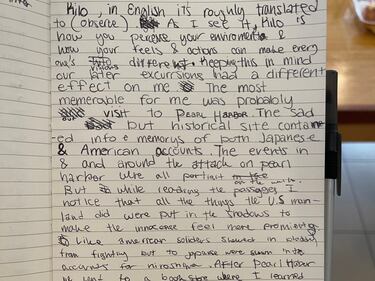 Kilo, in English its roughly translated
to (observe). As I see it, Kilo is
how you perceive your enviroment &
how your feels & actions can make every
one's different. Keeping this in mind
our later excursions had a different
effect on me. The most
memerable for me was probaloly
visit to Pearl Harbor. The sad
but historical site contain
ed info & memorys of both Japanese
& American accounts. The events in
& and around the attack on pearl
harbor were all
But while reading the passages, I
notice that all the things the U.S main-
land did were put in the shadows to
make the innocense feel more
Like american soliders in
from fighting but to Japanese were in the
accounts for hiroshima. After Pearl Habor
we went to a book store where I learned